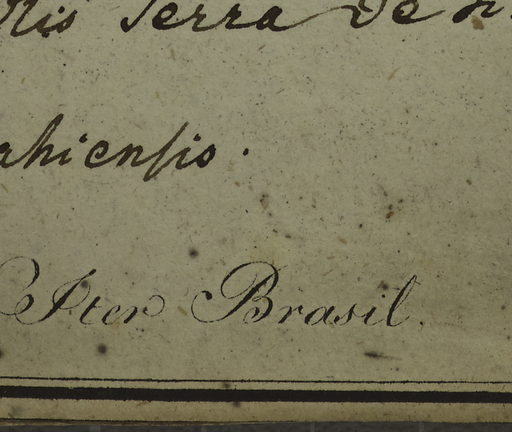 Terra de
ahiensis.
Iter Brasil.